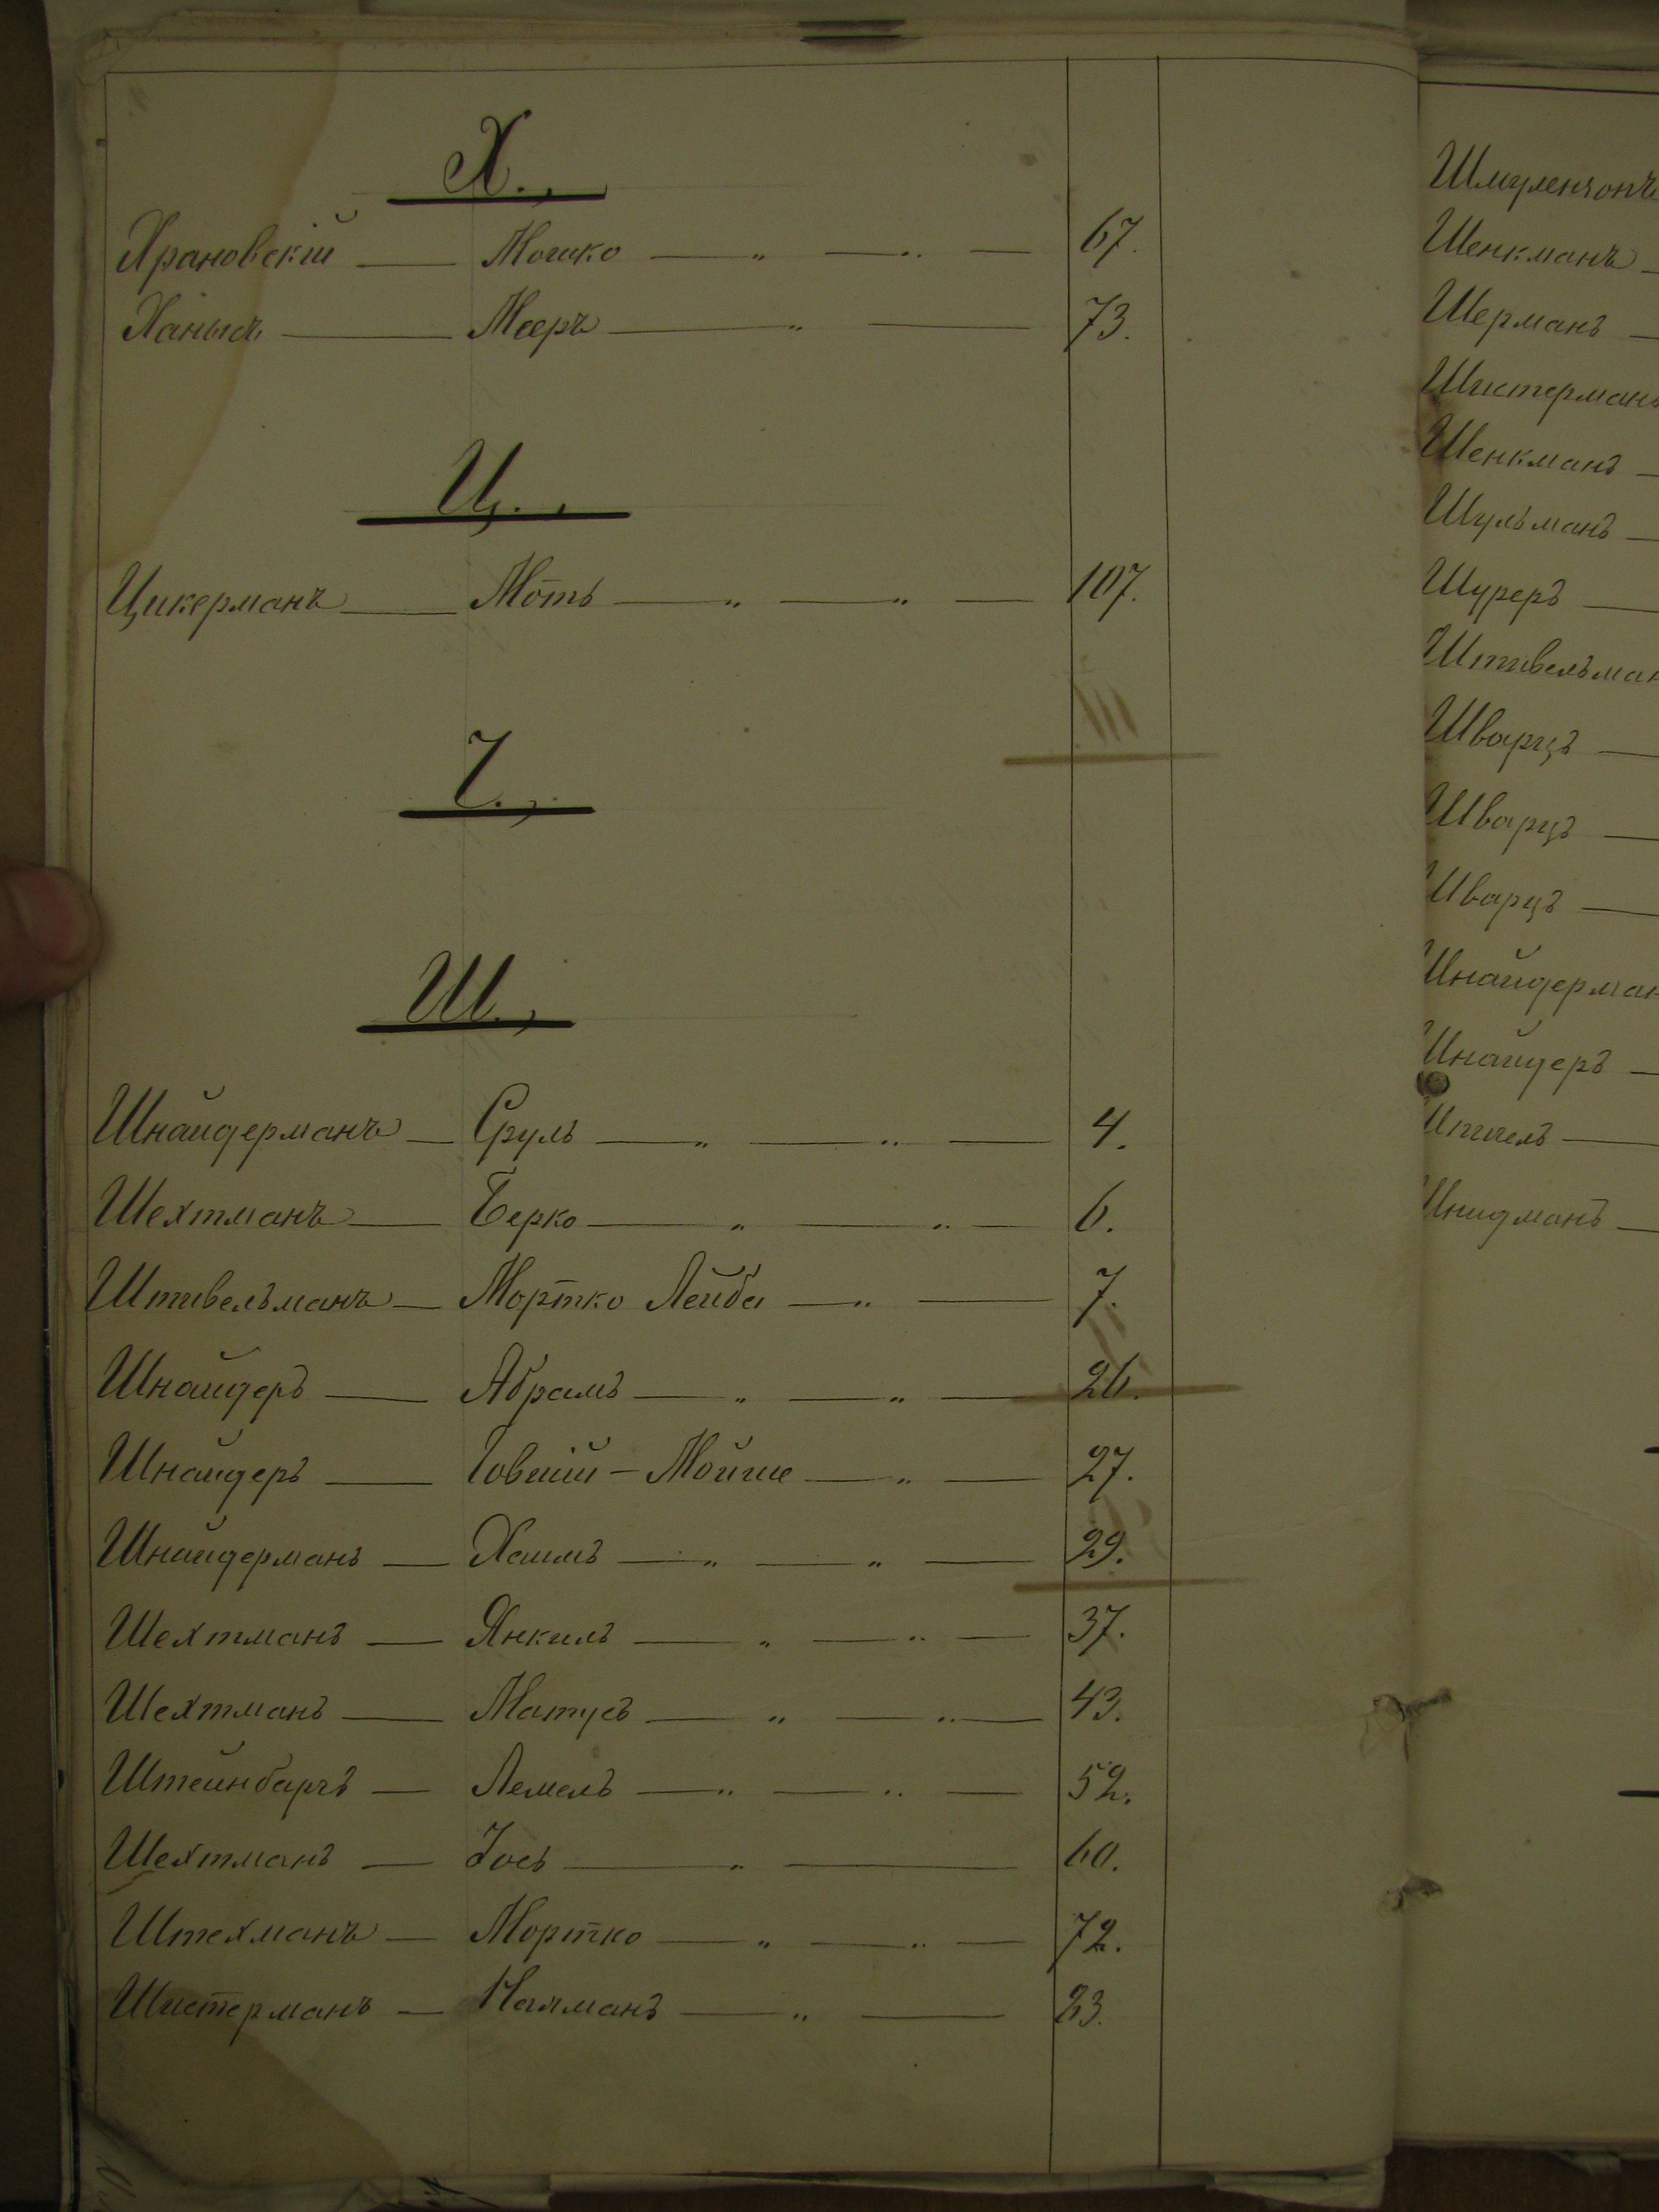 Х.,
Храновскій — Мошко — „ — „ — 67.
Ханысъ — Мееръ — „ — 73.
Ц.,
Цикерманъ — Моть — „ — „ — 107.
Ч.,
Ш.,
Шнайдерманъ — Сруль — „ — „ — 4.
Шехтманъ — Берко — „ — „ — 6.
Штивельманъ — Мортко Лейба — „ — 7.
Шнайдеръ — Абрамъ — „ — „ — 26.
Шнайдеръ — Іовшій - Мойше — „ — 27.
Шнайдерманъ — Хаимъ — „ — „ — 29.
Шехтманъ — Янкиль — „ — „ — 37.
Шехтманъ — Матусъ — „ — „ — 43.
Штейнбаргъ — Лемель — „ — „ — 52.
Шехтманъ — Іось — „ — 60.
Штехманъ — Мортко — „ — „ — 72.
Шистерманъ — Нахманъ — „ — 23.
Шмулензонъ
Шенкманъ —
Шерманъ —
Шистерманъ
Шенкманъ —
Шульманъ —
Шуреръ —
Штивельман
Шварцъ —
Шварцъ —
Шварцъ —
Шнайдерман
Шнайдеръ —
Шнидманъ —